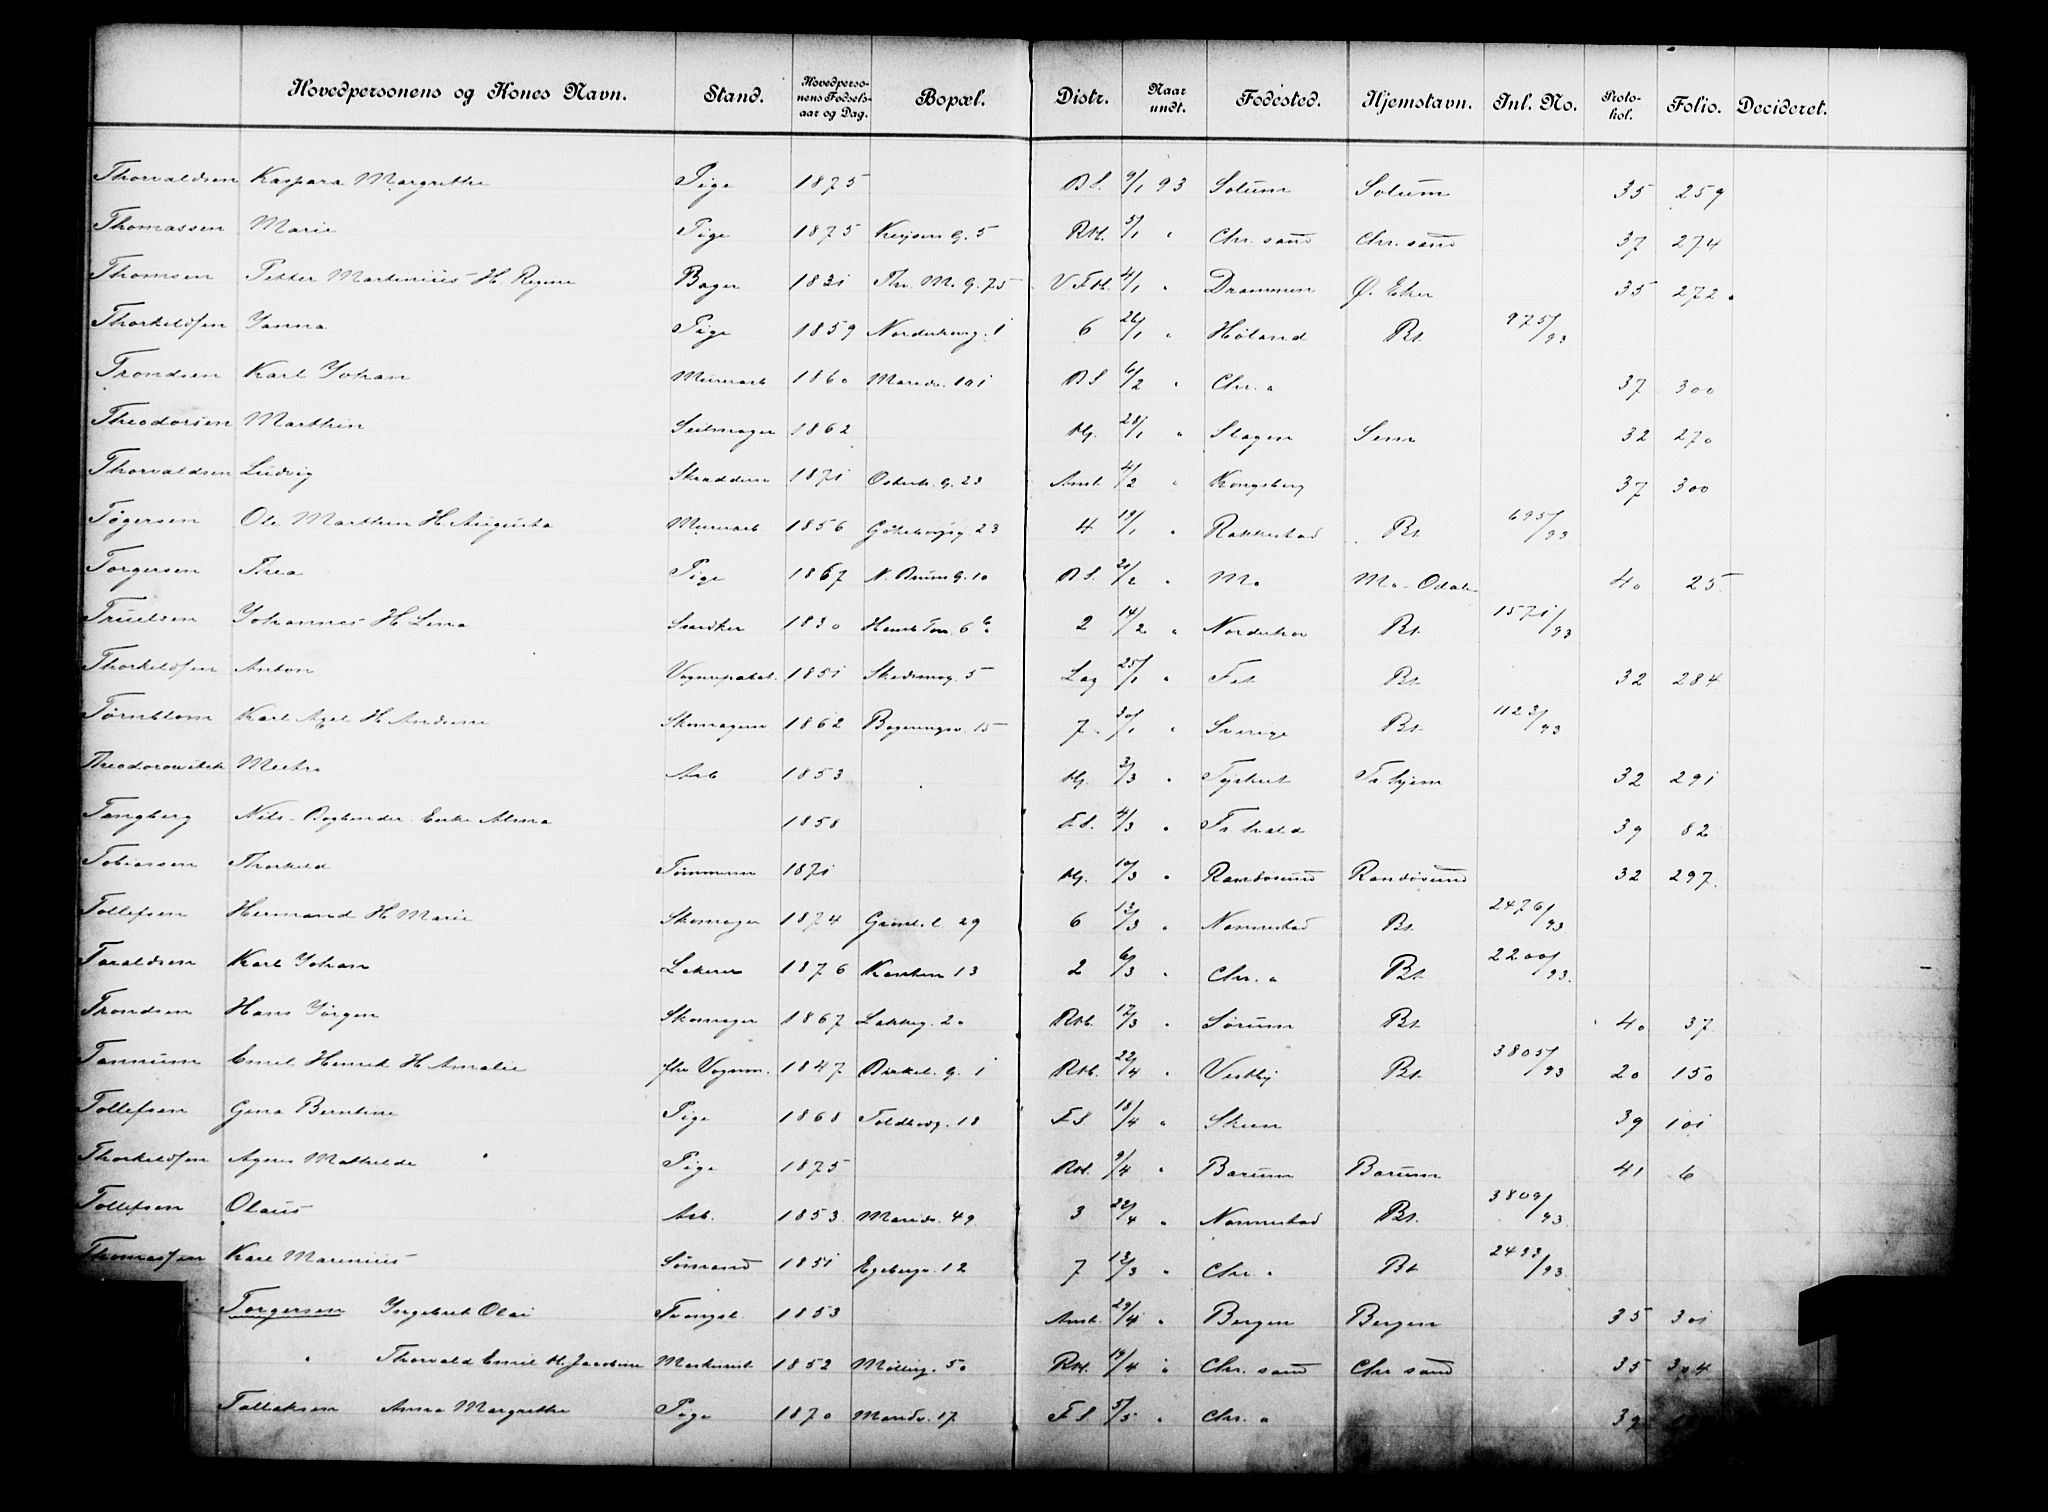 Hovedpersonens og Kones Navn. Stand. Hovedperso-nens Fødsels-aar og Dag. Bopæl. Distr. Naar undt. Fødested. Hjemstavn. Inl. No. Proto-kol. Folio. Decideret.
Thorvaldsen Kaspara Margrethe Pige 1875 B S. 9/1 93 Solum Solum 35 259
Thomassen Marie Pige 1875 Keysers G. 5 Rtl. 5/1 " Chr. sand Chr. sand 37 274
Thomsen Petter Martinius H. Regine Bager 1831 Thv. M. G. 75 V Ftl. 4/1 " Drammen Ø. Eker 35 272
Thorkeldsen Janna Pige 1859 Norderhovg. 1 6 26/1 " Høland Bt. 975/93
Trondsen Karl Johan Murerarb 1860 Maridv. 101 B S 6/2 " Chr. a 37 300
Theodorsen Marthin Seilmager 1862 Hj. 28/1 " Slagen Sem 32 270
Thorvaldsen Ludvig Skrædder 1871 Osterh. G. 23 Amt. 4/2 " Kongsberg 37 300
Tøgersen Ole Marthin H. Augusta Murerarb 1856 Göteborgsg. 23 4 19/1 " Rakkestad Bt. 695/93
Torgersen Thea Pige 1867 N. Brun G. 10 B S. 20/2 " Mo Mo - Odalen 40 25
Truelsen Johannes H. Lina Snedker 1830 2 14/2 " Norderhov Bt. 1571/93
Thorkeldsen Anton 1851 Skedsmog. 5 Lag 25/1 " Fet Bt. 32 284
Tørnblom Karl Axel H. Andrine Skomager 1862 Bogerudsv. 15 7 30/1 " Sverige Bt. 1123/93
Theodorowitch Arb 1853 Hj. 3/3 " Tyskeit Tr hjem 32 291
Tangberg Nils - Bogbinder Enke Alma 1858 F S. 4/3 " Fr. hald 39 82
Tobiassen Thorkild Tømmerm 1871 Hj. 10/3 " Randøsund Randøsund 32 297
Tollefsen Hermand H. Marie Skomager 1874 Grønl. l 29 6 13/3 " Nannestad Bt. 2476/93
Taraldsen Karl Johan Lakerer 1876 2 6/3 " Chr. a Bt. 2200/93
Trondsen Hans Jørgen Skomager 1867 Lakkeg. 20 Rtl. 17/3 " Sørum Bt. 40 37
Tannum Emil Henrik H. Amalie fhv Vognm. 1847 Birkel. G. 1 Rtl. 22/4 " Vestby Bt. 3805/93 20 150
Tollefsen Gina Berntine Pige 1868 Toldbodg. 18 F S 18/4 " Skien 39 101
Thorkeldsen Agnes Mathilde Pige 1875 Rtl. 9/4 " Barum Barum 41 6
Tollefsen Olaus Arb. 1853 Maridv. 49 3 22/4 " Nannestad Bt. 3809/93
Thomassen Karl Marinius Sømand 1851 Egebergv. 12 7 13/3 " Chr. a Bt. 2493/93
Torgersen Ingebret Olai Tvangsl. 1853 Amt. 29/4 " Bergen Bergen 35 301
" Thorvald Emil H. Jacobine Maskinist 1852 Mølleg. 50 Rtl. 19/4 " Chr. sand Chr sand 35 304
Tollaksen Anna Margrethe Pige 1870 Maridv. 17 F S 5/5 " Chr. a 39